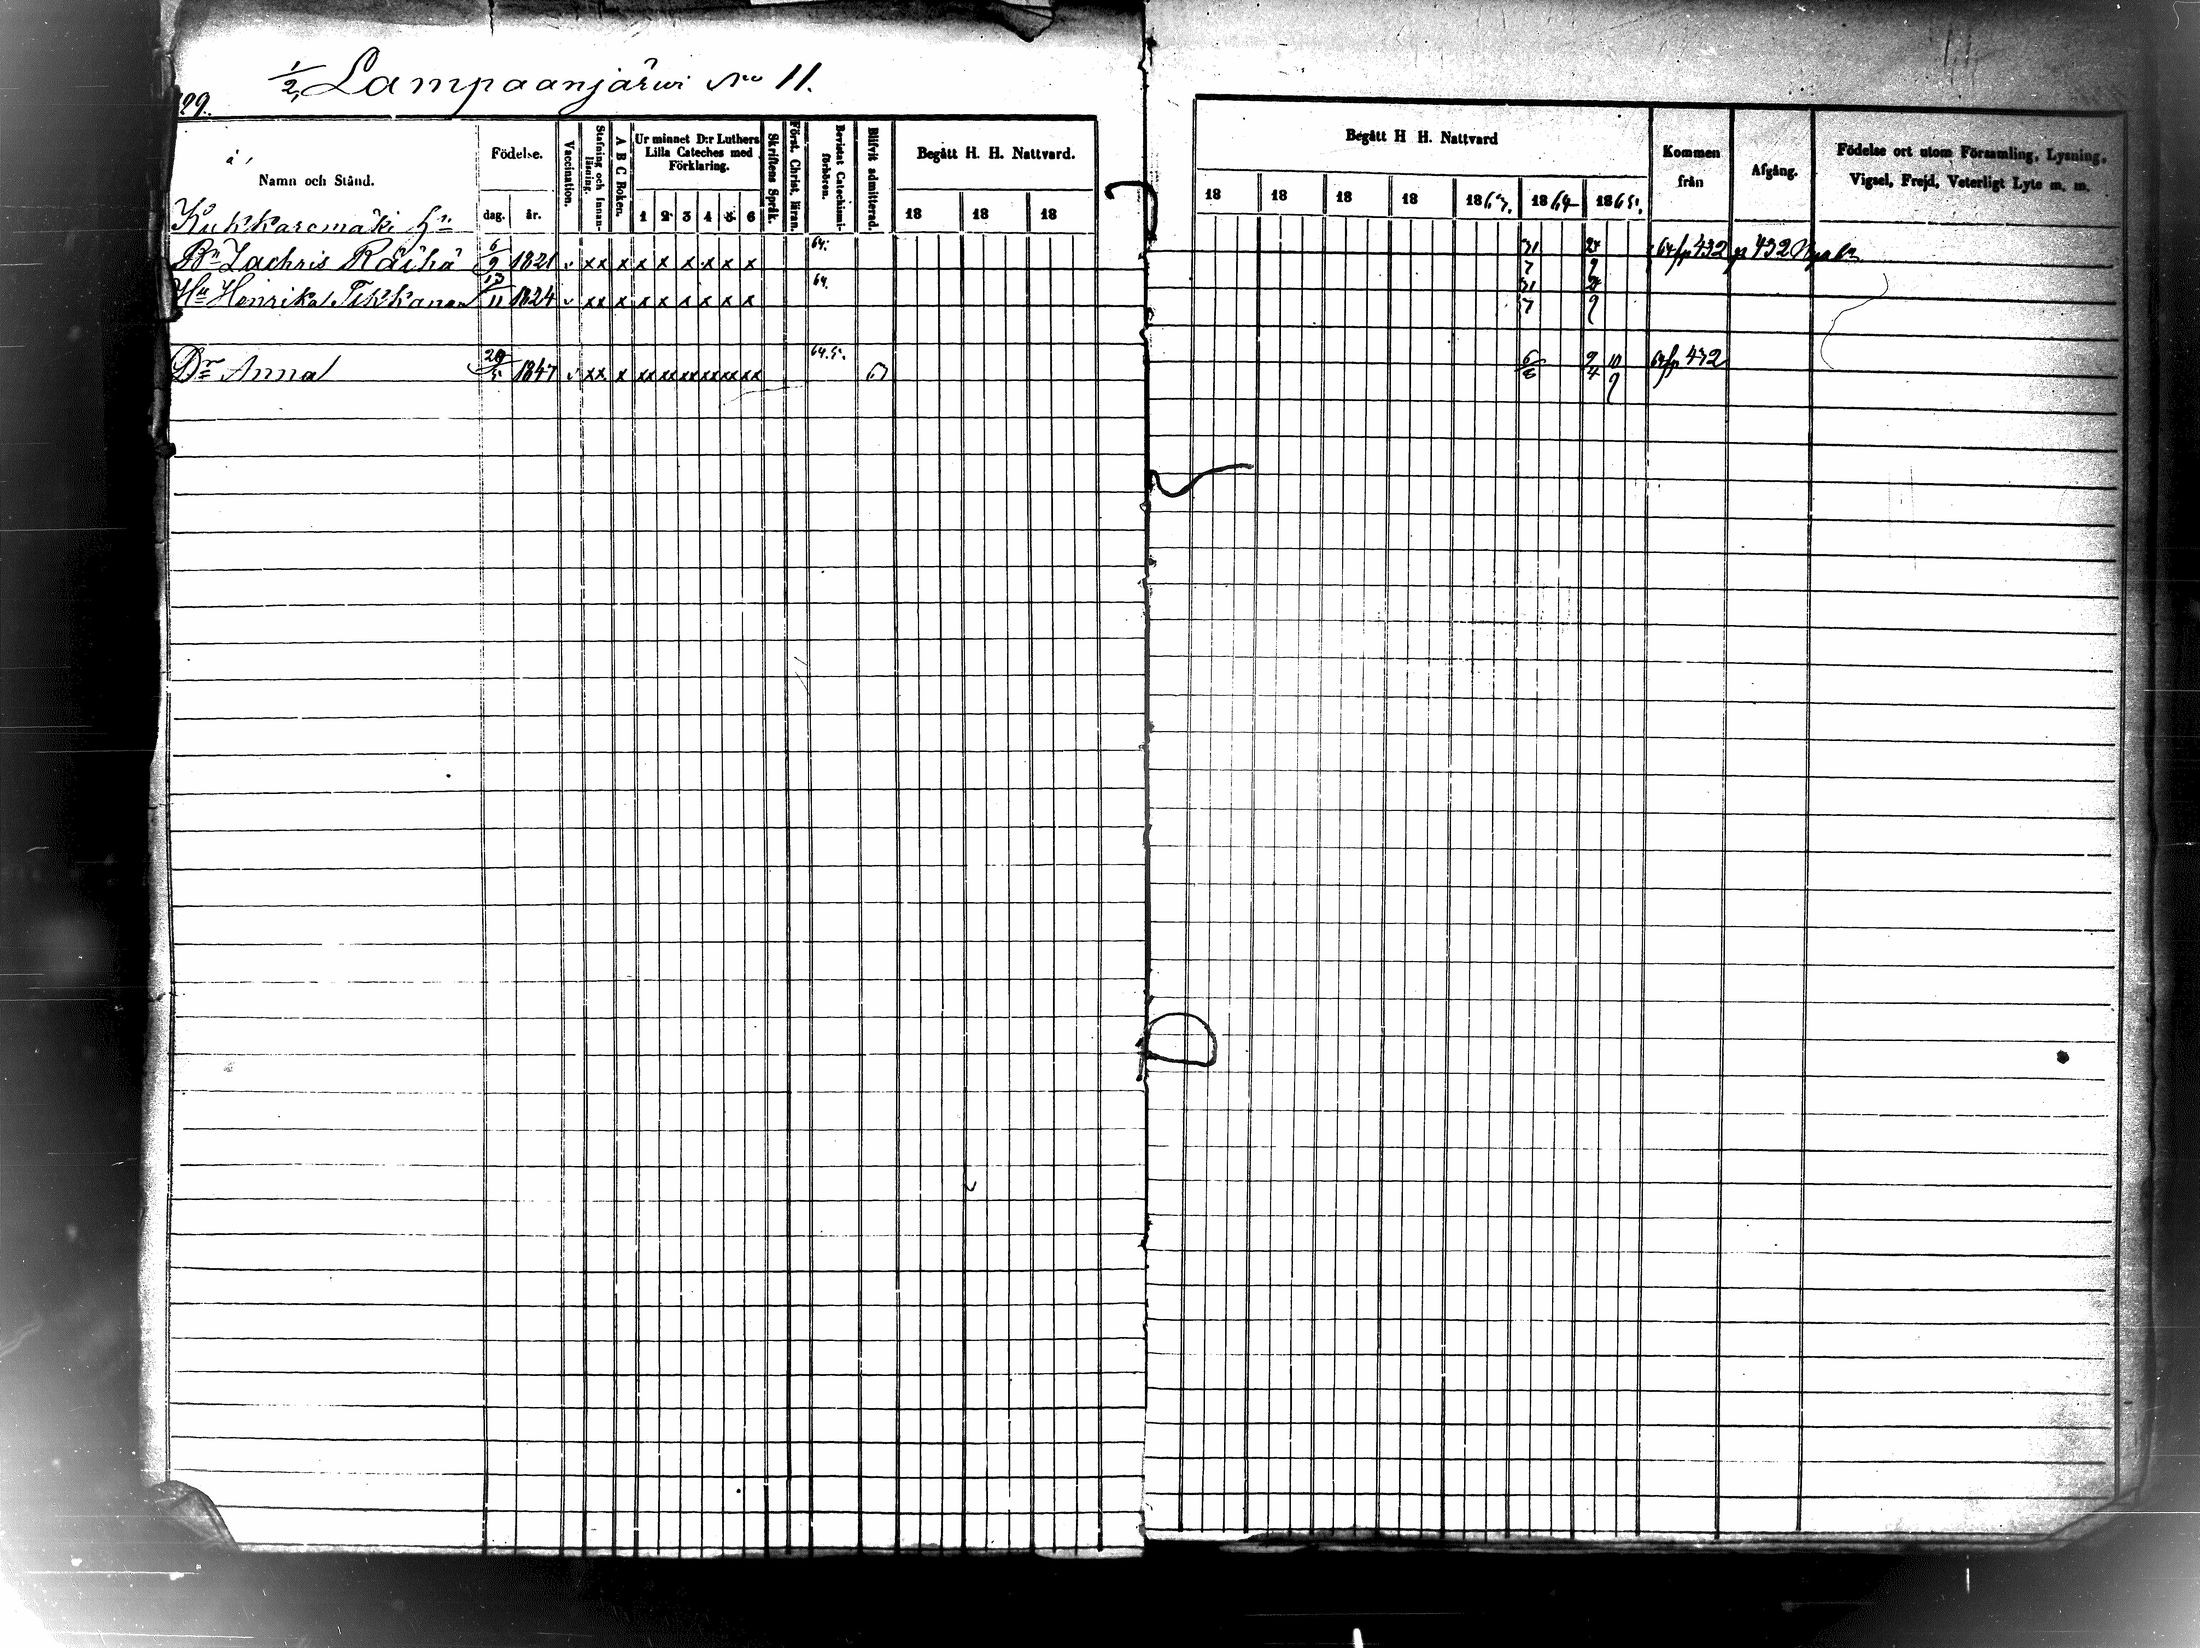 1/2 Lampaanjärwi No 11.
29.
Namn och Stånd.
Födelse.
dag. år.
Vaccination.
Stafning och Innan-läsning.
A B C Boken.
Ur minnet D:r Luthers Lilla Cateches med Förklaring.
1 2 3 4 5 6
Skriftens Språk.
Först. Christ. läran.
Bevistat Catechismi-förhören.
Blifvit admitterad.
Begått H. H. Nattvard.
18 18 18
Begått H H. Nattvard
18 18 18 18 1863. 1864 1865.
Kommen från
Afgång.
Födelse ort utom Församling, Lysning, Vigsel, Frejd, Veterligt Lyte m. m.
Zachris Räihä 6/9 1821 v xx x x x x x x x 64. 31/7 2 432 p 432
Henrika Tikkanen 11 1824 v xx x x x x x x x 64. 31/7
Dr Anna 5 1847 v xx x xx xx xx xx xx xx 64.5. 9/4 10/9 432